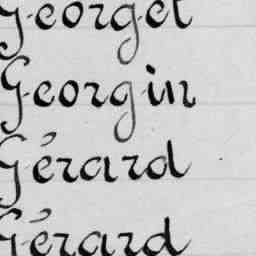 Georget
Georgin
Gérard
Gérard